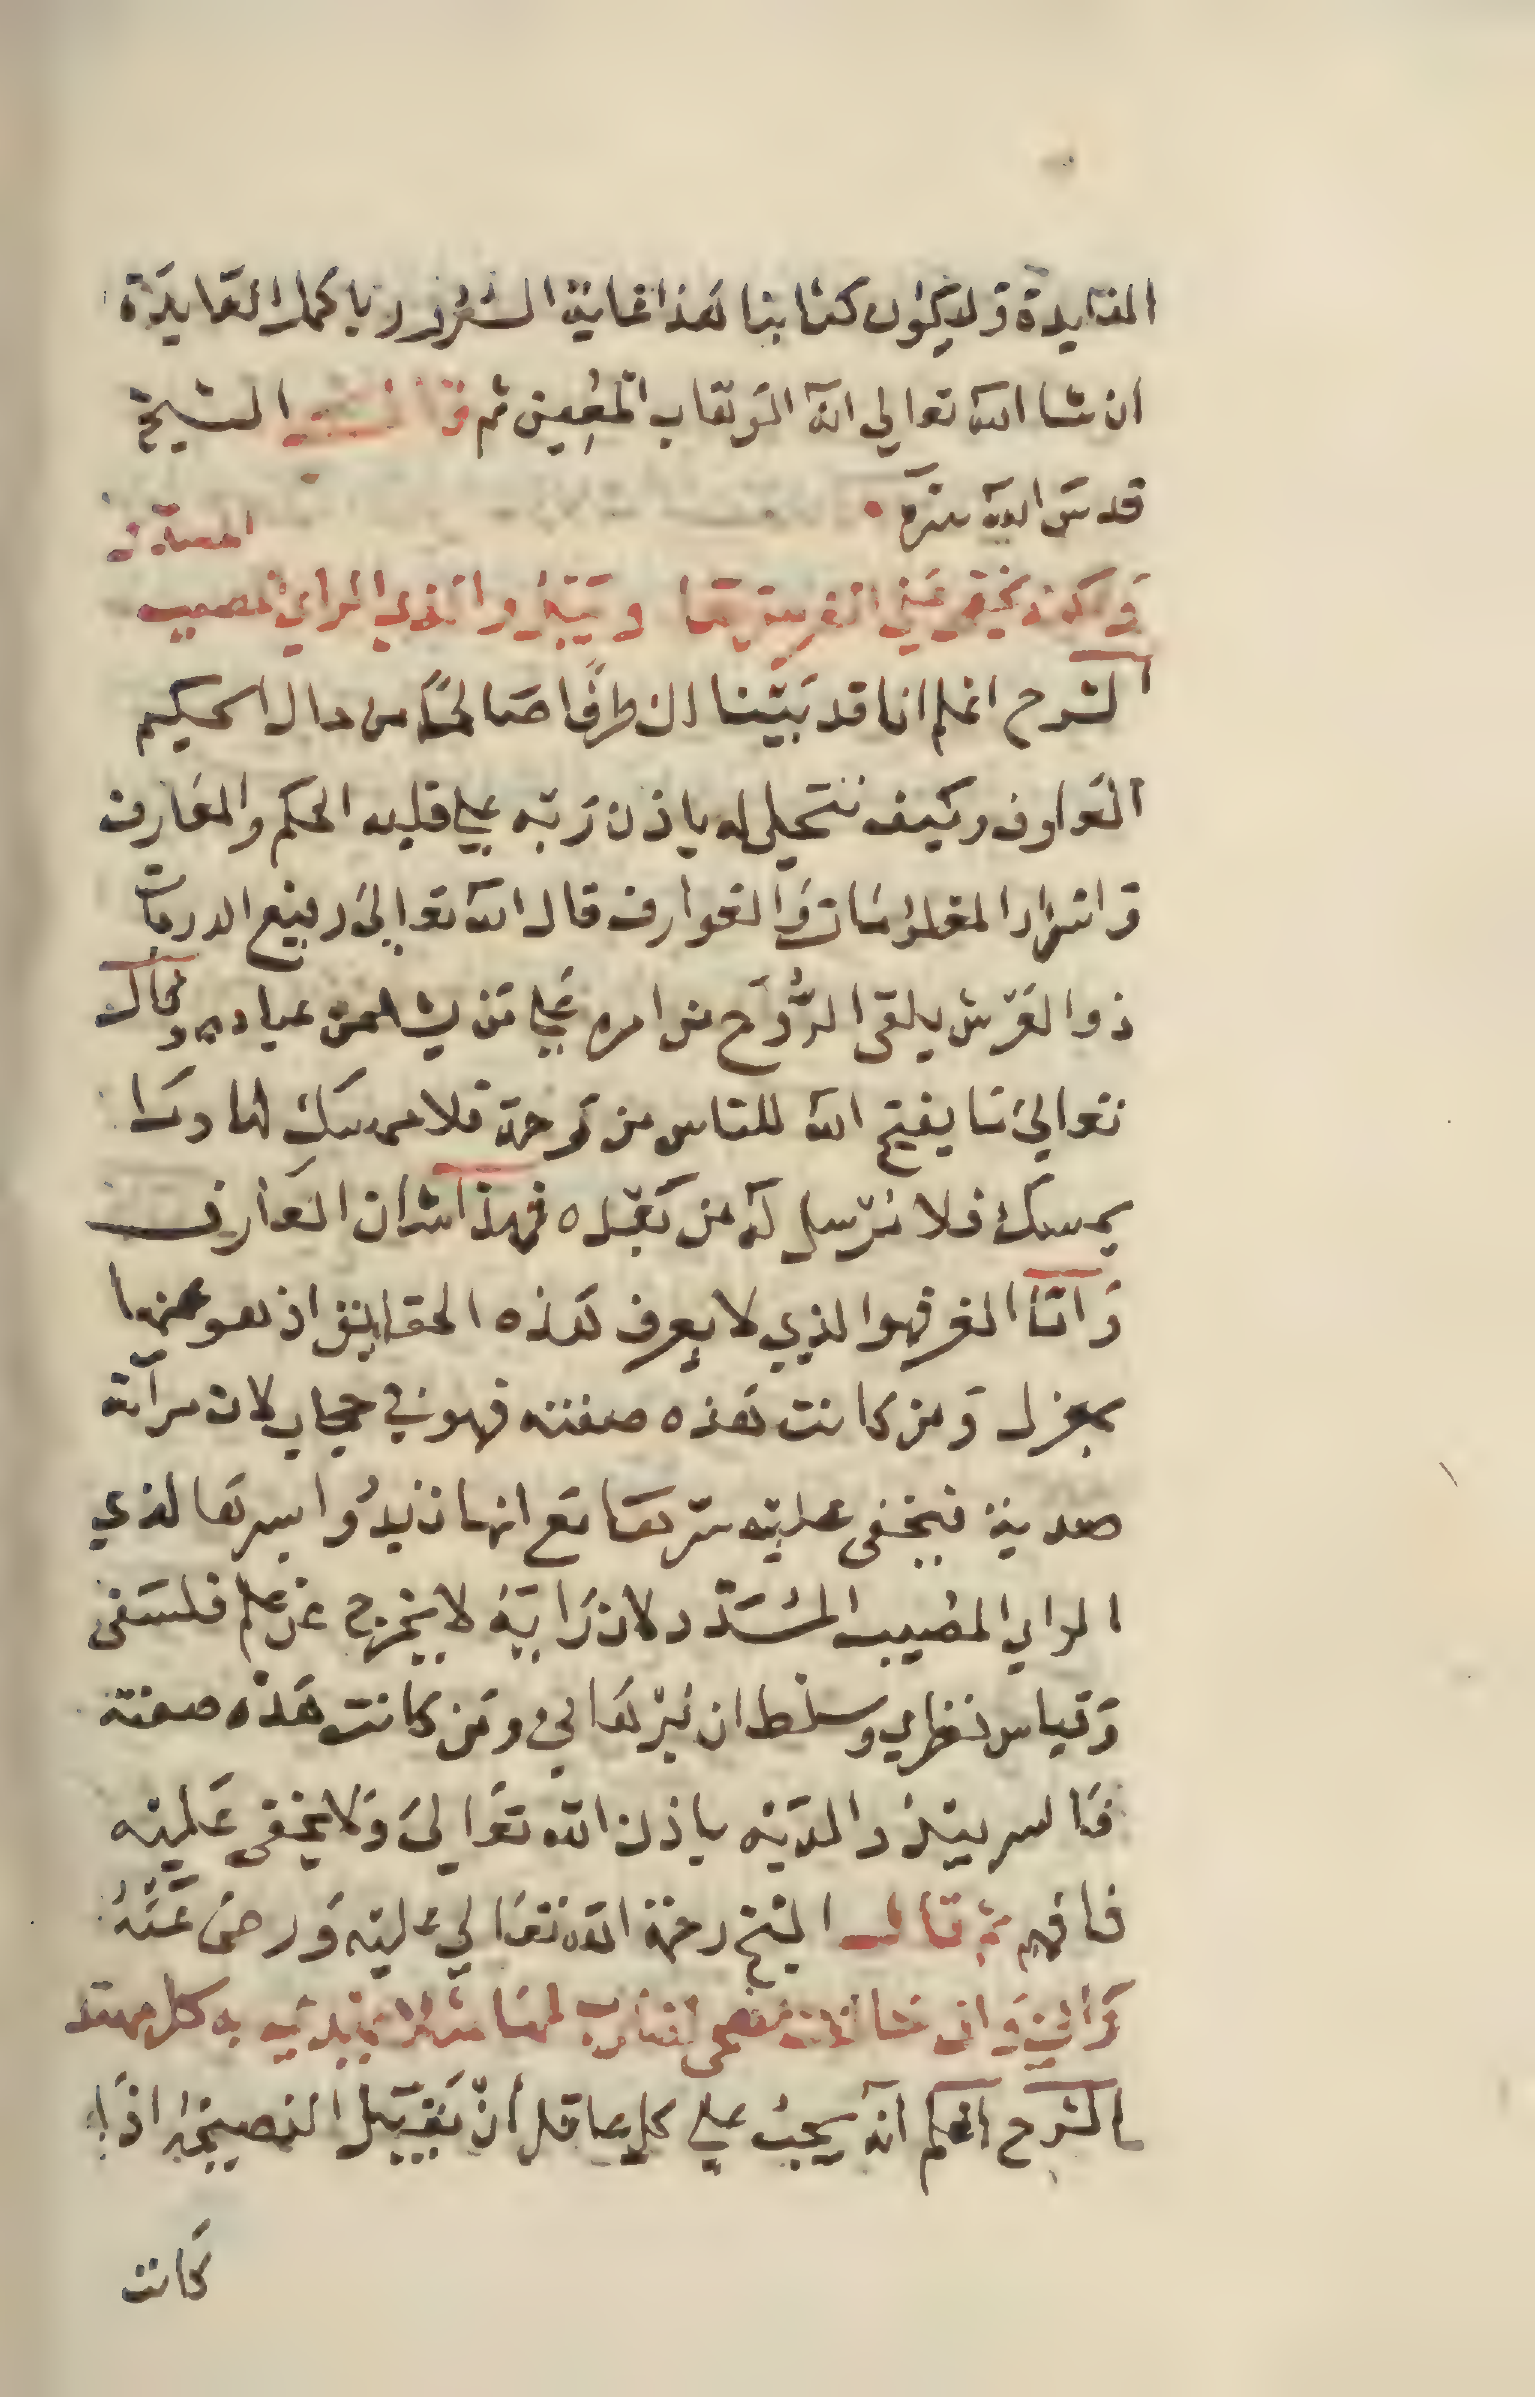 الفايدة وليكون كتابنا هذا غاية السرور باكمال الفايدة
ان شا الله تعالي انه الوهاب المعين ثم قال الشيخ
قدس الله سره
المسدد
وكذا يخفي عن الغر سرها ويبدوا لذي الراي المصيب
الشرح اعلم انا قد بينا لك طرفا صالحا من حال الحكيم
العارف وكيف تتجلي له باذن ربه علي قلبه الحكم والمعارف
واسرار المعلومات والعوارف قال الله تعالي رفيع الدرجات
ذو العرش يلقي الروح من امره علي من يشا من عباده وقال
تعالي ما يفتح الله للناس من رحمة فلا ممسك لها وما
يمسك فلا مرسل له من بعده فهذا شان العارف
واما الغر فهو الذي لا يعرف هذه الحقايق اذ هو عنها
بمعزل ومن كانت هذه صفته فهو في حجاب لان مرآته
صدية فيخفي عليه سرها مع انها تبدوا بسرها لذي
الراي المصيب المسدد لان رايه لا يخرج عن علم فلسفي
وقياس نظري وسلطان برهاني ومن كانت هذه صفته
فالسر يبدوا لديه باذن الله تعالي ولا يخفي عليه
فافهم ثم قال الشيخ رحمة الله تعالي عليه ورضي عنه
به كل مهتد
الشرح اعلم انه يجب علي كل عاقل ان يقبل النصيحة اذا
كانت